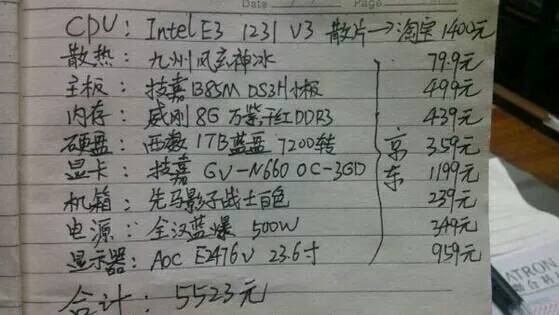 Date
Page
CPU: Intel E3 1231 V3 散片→淘宝 1400元
散热: 九州风玄神冰 79.9元
主板: 技嘉B85M DS3H小板 499元
内存: 威刚 8G 万紫千红DDR3 439元
硬盘: 西数 1TB蓝盘 7200转 359元
显卡: 技嘉 GV-N660 OC-3GD 1199元
机箱: 先马影子战士白色 239元
电源: 全汉蓝爆 500W 349元
显示器: AOC E2476V 23.6寸 959元
京东
合计: 5523元
ATRON